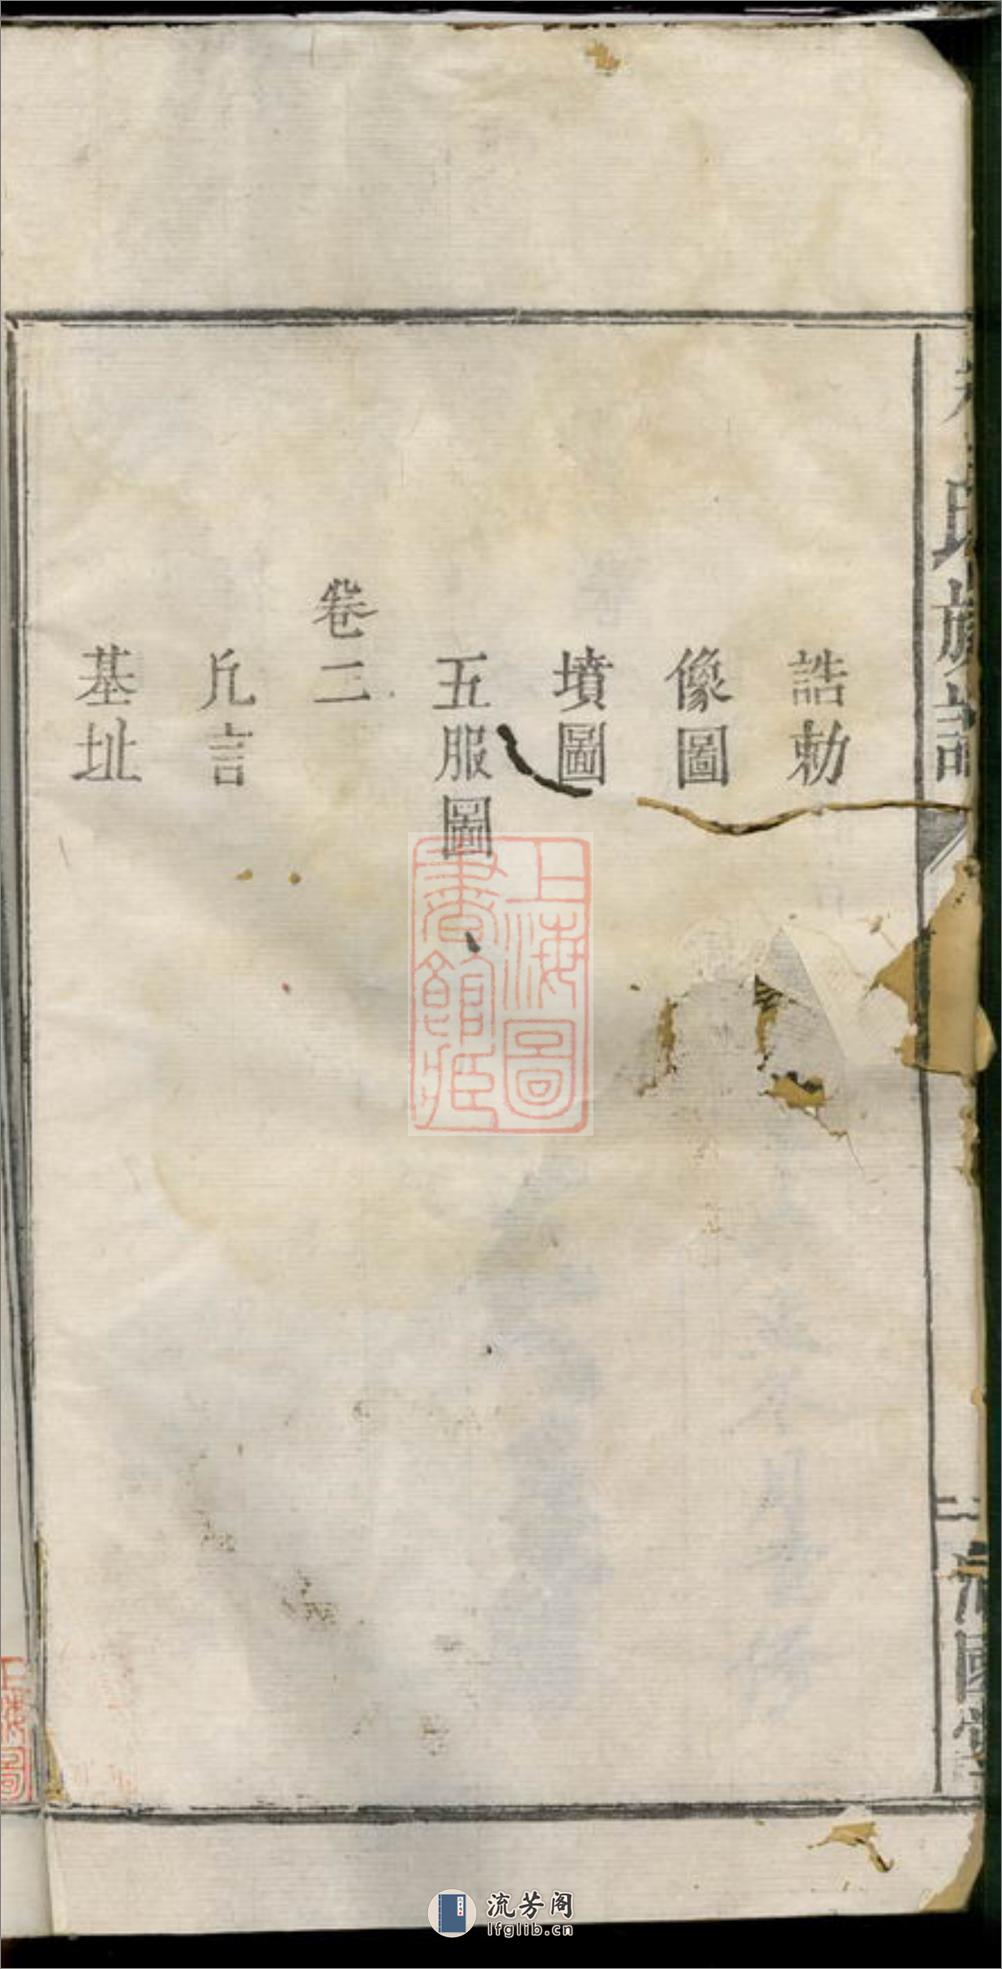 誥勅
像圖
墳圖
五服圖
卷二
凡言
基址
氏族譜
二
上海圖書館藏
上海圖
流芳阁
lfglib.cn